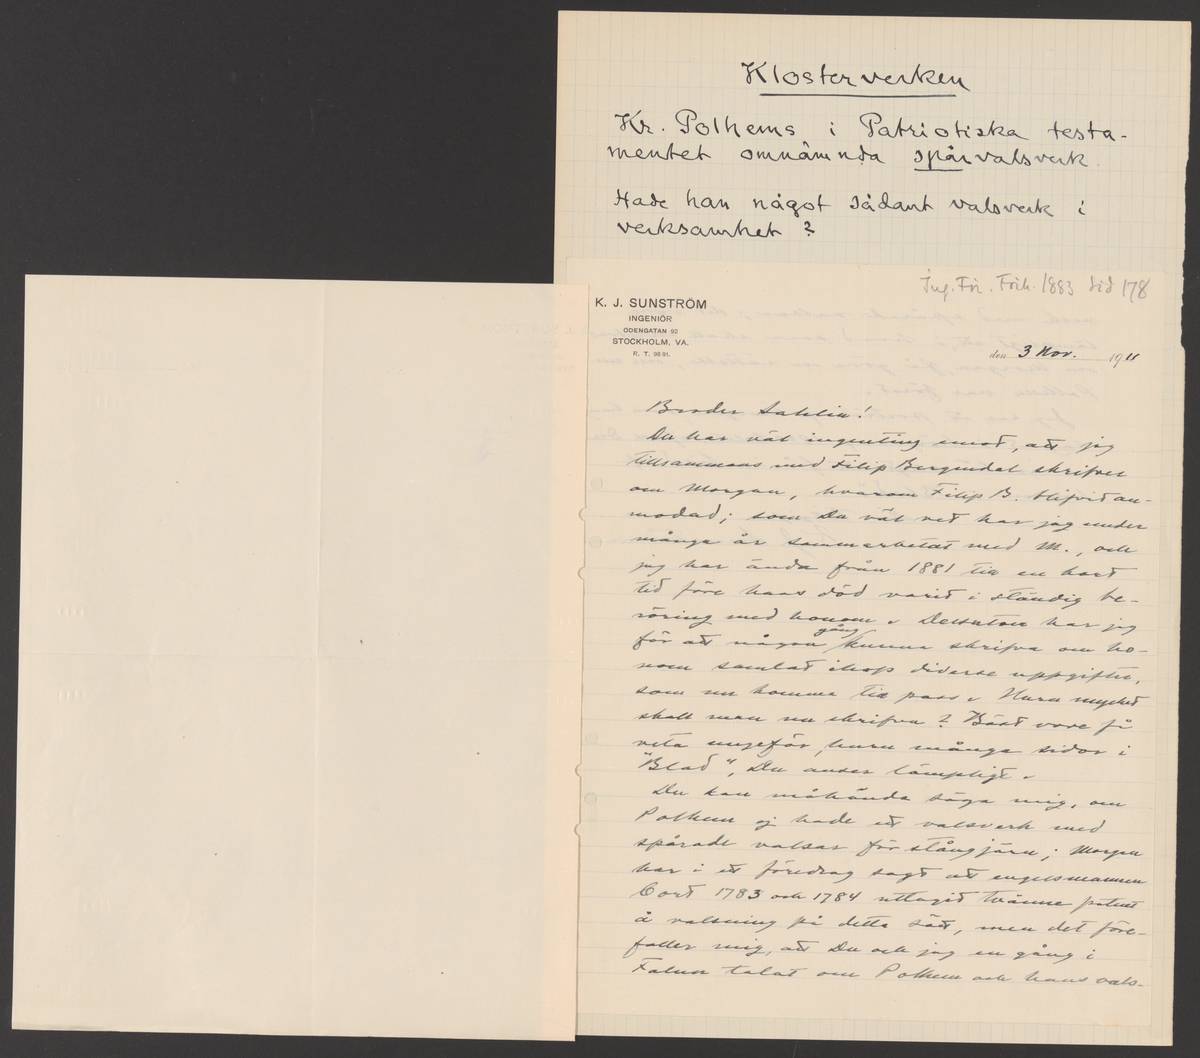 Klosterverken
Kr. Polhems i Patriotiska testa-
mentet omnämnda spårvalsverk.
Hade han något sådant valsverk i
verksamhet?
Ing. För. Förh. 1883 sid 178
K. J. SUNSTRÖM
INGENIÖR
ODENGATAN 92
STOCKHOLM, VA.
R. T. 96 91.
den 3 Nov. 1911
Broder Sahlin!
Du har väl ingenting emot, att jag
tillsammans med Filip Bergendal skrifver
om Morgan, hvarom Filip B. blifvit an-
modad; som Du väl vet har jag under
många år sammarbetat med M., och
jag har ända från 1881 till en kort
tid före hans död varit i ständig be-
röring med honom. Dessutom har jag
för att någon gång kunna skrifva om ho-
nom samlat ihop diverse uppgifter,
som nu komma till pass. Huru mycket
skall man nu skrifva? Bäst vore få
veta ungefär huru många sidor i
"Blad", Du anser lämpligt.
Du kan måhända säga mig, om
Polhem ej hade ett valsverk med
spårade valsar för stångjärn; Morgan
har i ett föredrag sagt att engelsmannen
Cort 1783 och 1784 uttagit tvänne patent
å valsning på detta sätt, men det före-
faller mig, att Du och jag en gång i
Falun talat om Polhem och hans vals-